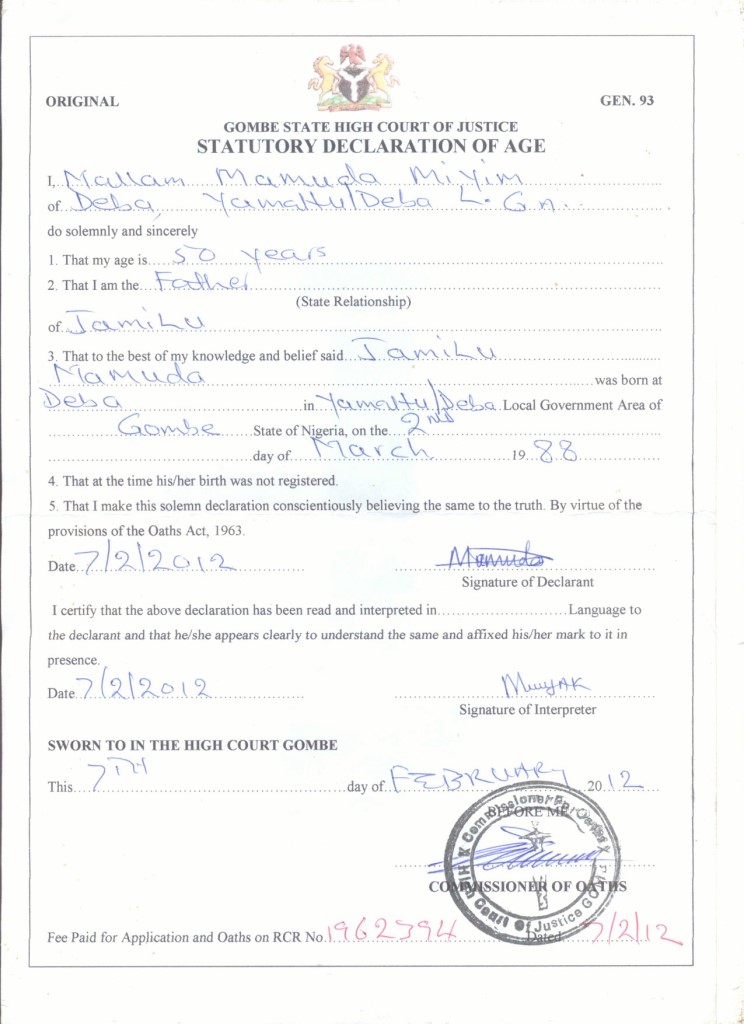 ORIGINAL
GEN. 93
GOMBE STATE HIGH COURT OF JUSTICE
STATUTORY DECLARATION OF AGE
I, Mallam Mamuda Miyim
of Deba, Yamaltu/Deba L.G.A.
do solemnly and sincerely
1. That my age is 50 years
2. That I am the Father
(State Relationship)
of Jamilu
3. That to the best of my knowledge and belief said Jamilu
Mamuda was born at
Deba in Yamaltu/Deba Local Government Area of
Gombe State of Nigeria, on the 2nd
day of March 19 88
4. That at the time his/her birth was not registered.
5. That I make this solemn declaration conscientiously believing the same to the truth. By virtue of the
provisions of the Oaths Act, 1963.
Date 7/2/2012 Mamuda
Signature of Declarant
I certify that the above declaration has been read and interpreted in Language to
the declarant and that he/she appears clearly to understand the same and affixed his/her mark to it in
presence.
Date 7/2/2012
Signature of Interpreter
SWORN TO IN THE HIGH COURT GOMBE
This 7TH day of FEBRUARY 20 12
BEFORE ME
Commissioner For Oaths
COMMISSIONER OF OATHS
High Court Of Justice
Fee Paid for Application and Oaths on RCR No 1962394 Dated 7/2/12